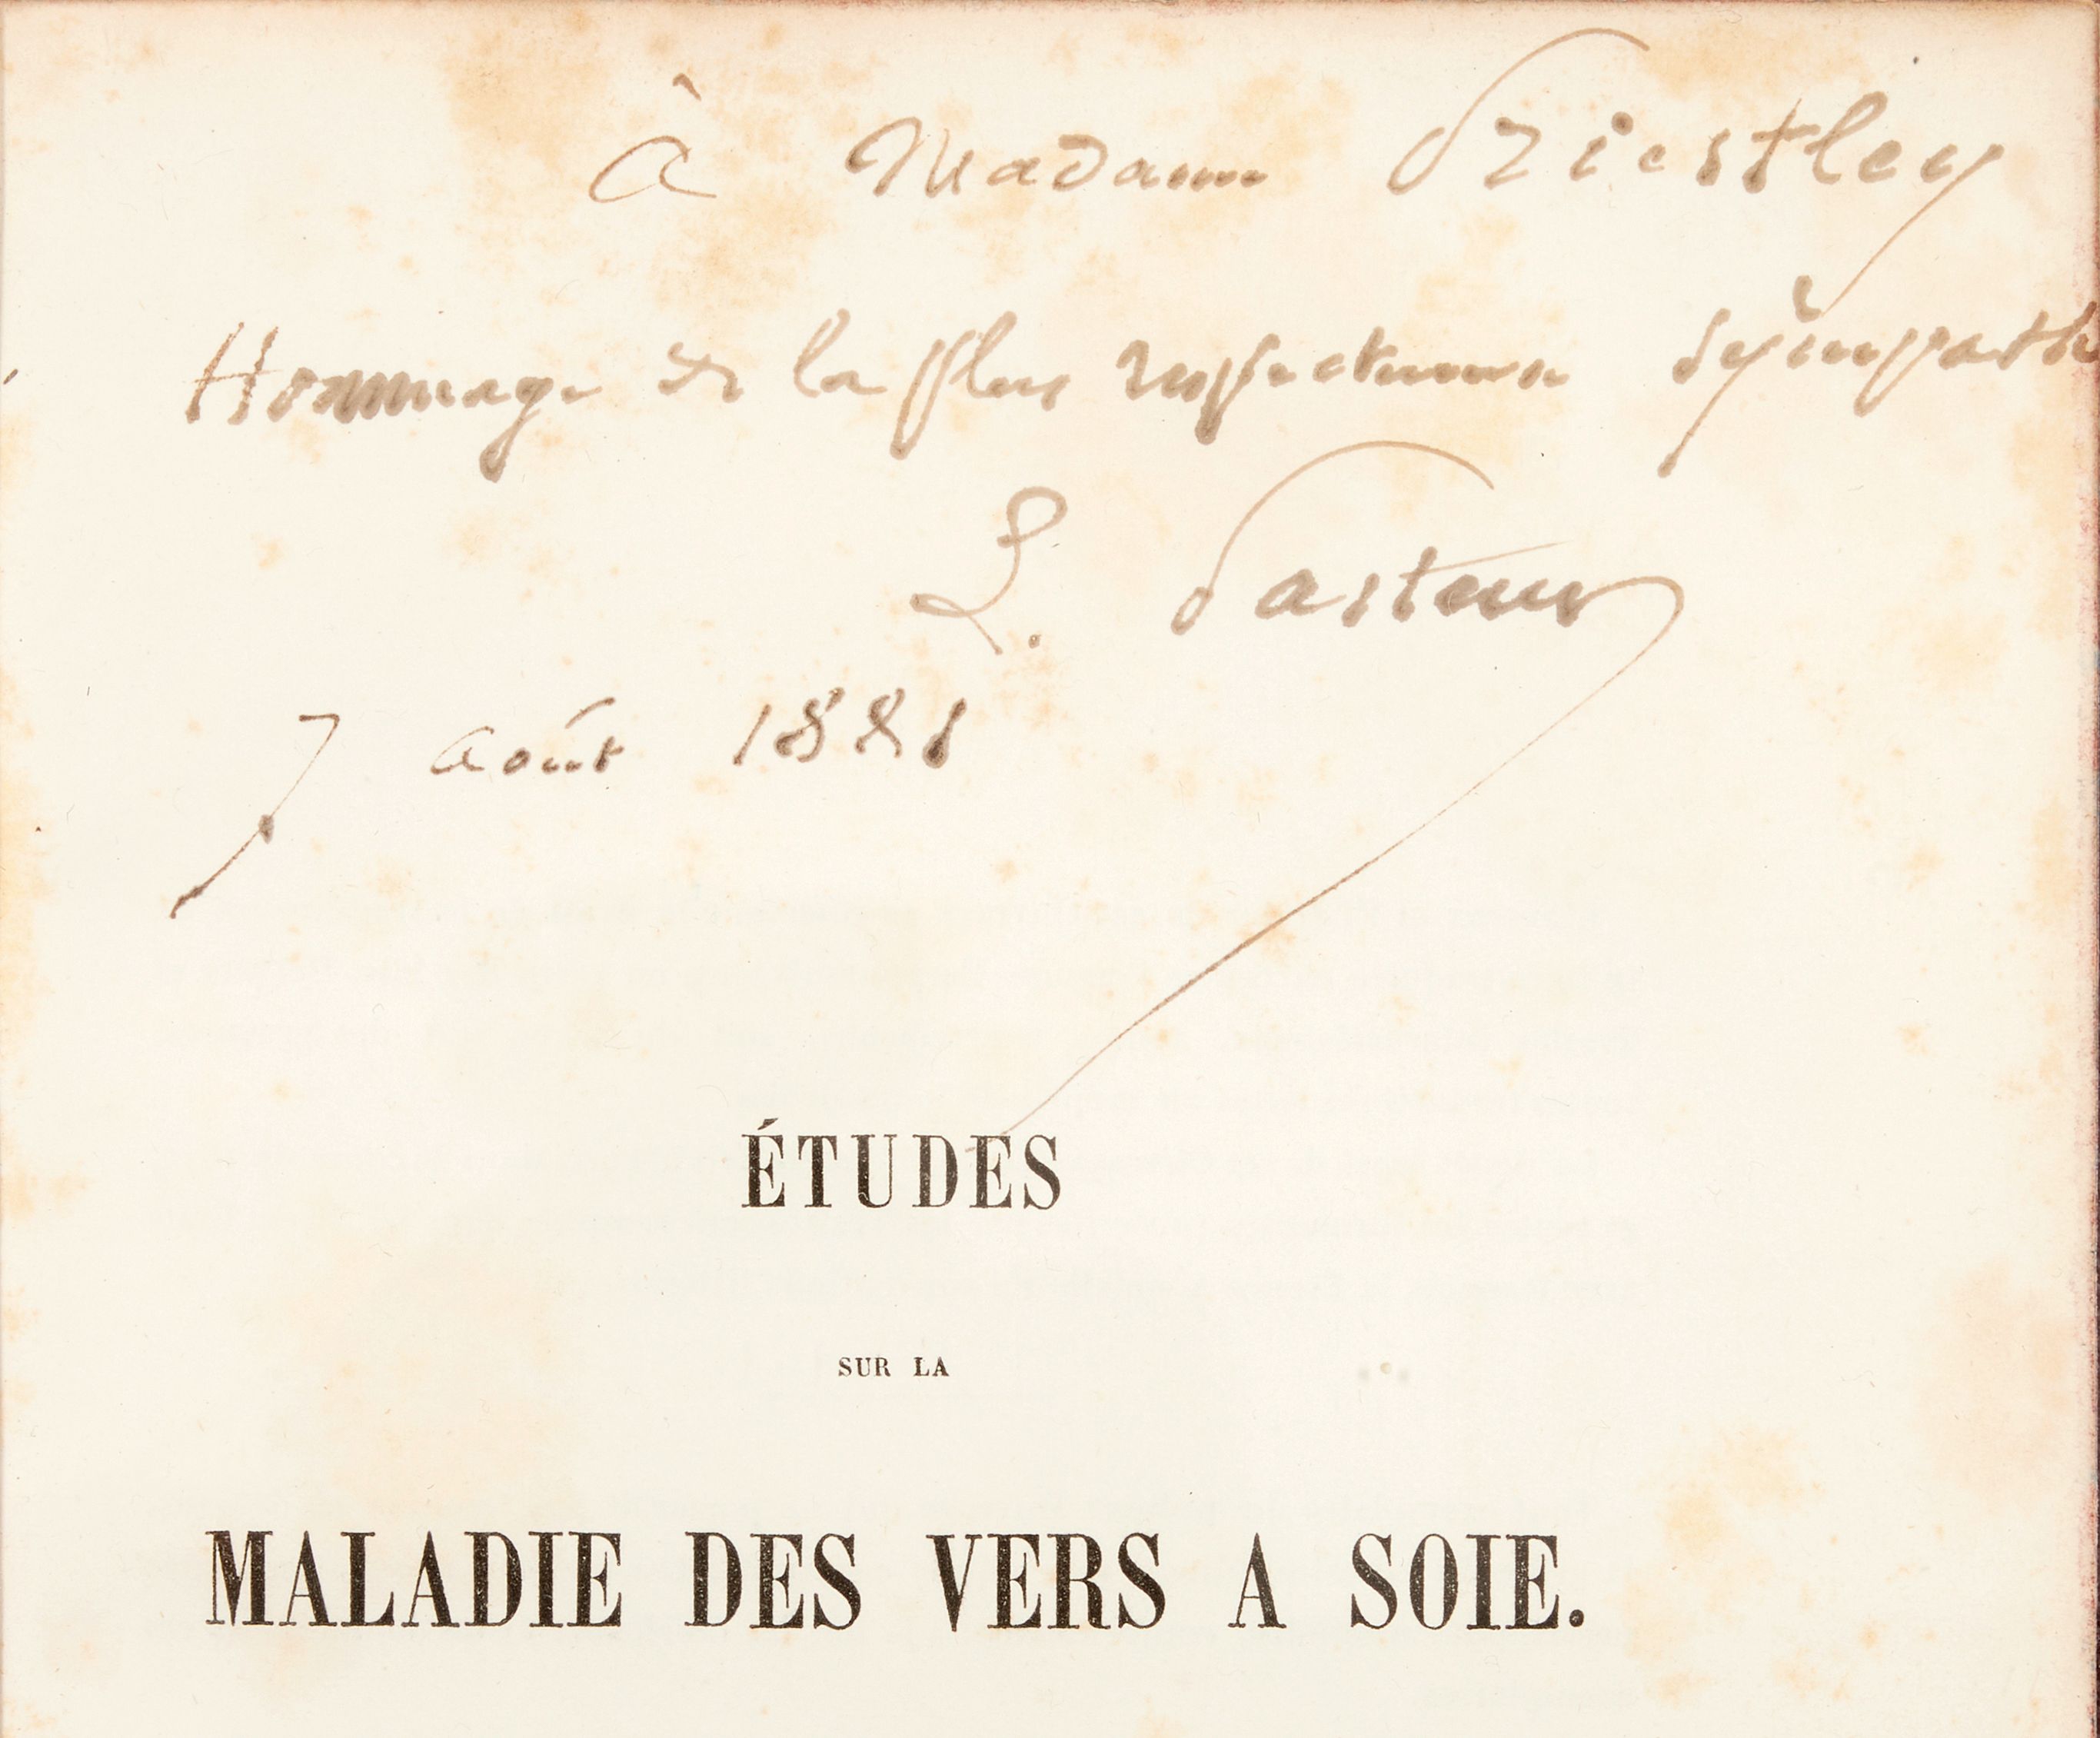 à Madame Priestley
Hommage de la plus respectueuse sympathie
L. Pasteur
7 août 1881
ÉTUDES
SUR LA
MALADIE DES VERS A SOIE.